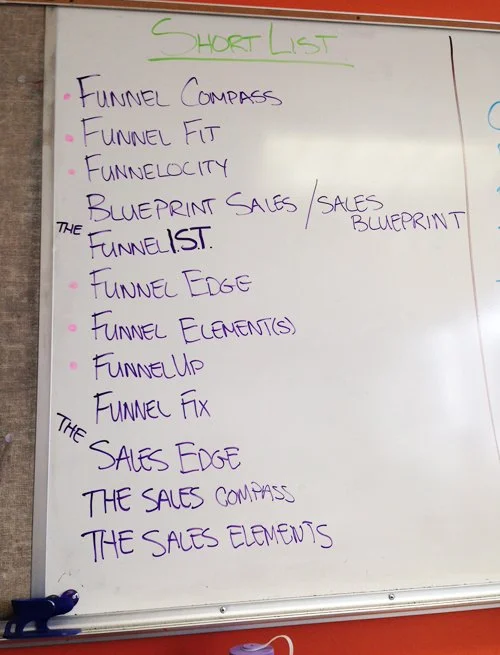 SHORT LIST
• FUNNEL COMPASS
• FUNNEL FIT
• FUNNELOCITY
BLUEPRINT SALES / SALES BLUEPRINT
THE FUNNELI.S.T.
• FUNNEL EDGE
• FUNNEL ELEMENT(S)
• FUNNELUP
FUNNEL FIX
THE SALES EDGE
THE SALES COMPASS
THE SALES ELEMENTS